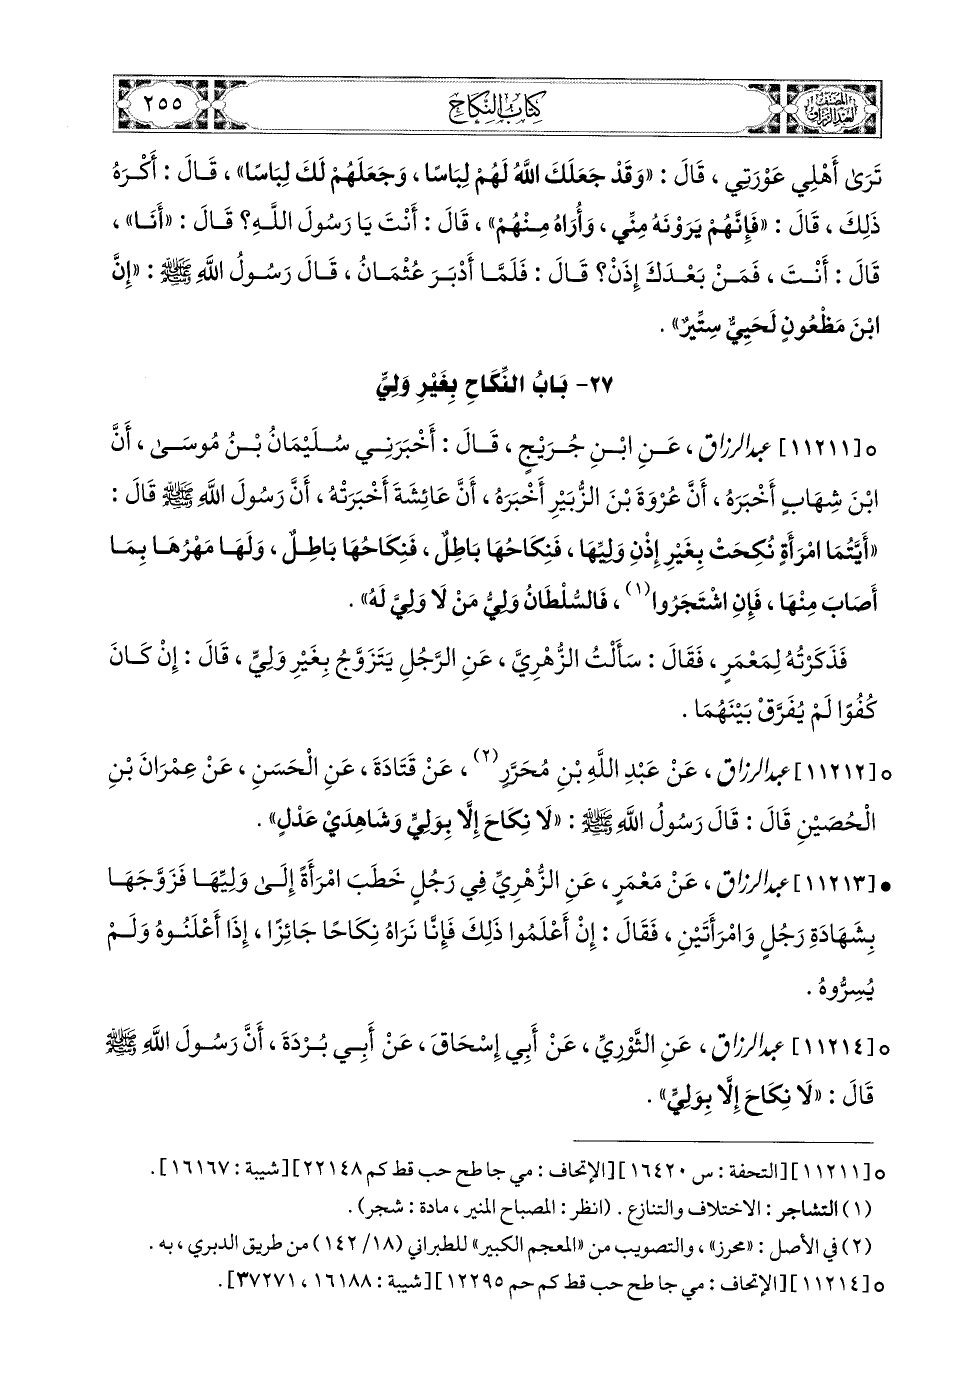 المصنف لعبد الرزاق
كتاب النكاح
٢٥٥
تَرَىٰ أَهْلِي عَوْرَتِي ، قَالَ : «وَقَدْ جَعَلَكَ اللَّهُ لَهُمْ لِبَاسًا ، وَجَعَلَهُمْ لَكَ لِبَاسًا» ، قَالَ : أَكْرَهُ
ذَلِكَ ، قَالَ : «فَإِنَّهُمْ يَرَوْنَهُ مِنِّي ، وَأُرَاهُ مِنْهُمْ» ، قَالَ : أَنْتَ يَا رَسُولَ اللَّهِ؟ قَالَ : «أَنَا» ،
قَالَ : أَنْتَ ، فَمَنْ بَعْدَكَ إِذَنْ؟ قَالَ : فَلَمَّا أَدْبَرَ عُثْمَانُ ، قَالَ رَسُولُ اللَّهِ ﷺ : «إِنَّ
ابْنَ مَظْعُونٍ لَحَيِيٌّ سِتِّيرٌ» .
٢٧- بَابُ النِّكَاحِ بِغَيْرِ وَلِيٍّ
○ [١١٢١١] عبد الرزاق ، عَنِ ابْنِ جُرَيْجٍ ، قَالَ : أَخْبَرَنِي سُلَيْمَانُ بْنُ مُوسَىٰ ، أَنَّ
ابْنَ شِهَابٍ أَخْبَرَهُ ، أَنَّ عُرْوَةَ بْنَ الزُّبَيْرِ أَخْبَرَهُ ، أَنَّ عَائِشَةَ أَخْبَرَتْهُ ، أَنَّ رَسُولَ اللَّهِ ﷺ قَالَ :
«أَيُّتُمَا امْرَأَةٍ نُكِحَتْ بِغَيْرِ إِذْنِ وَلِيِّهَا ، فَنِكَاحُهَا بَاطِلٌ ، فَنِكَاحُهَا بَاطِلٌ ، وَلَهَا مَهْرُهَا بِمَا
أَصَابَ مِنْهَا ، فَإِنِ اشْتَجَرُوا(١) ، فَالسُّلْطَانُ وَلِيُّ مَنْ لَا وَلِيَّ لَهُ» .
فَذَكَرْتُهُ لِمَعْمَرٍ ، فَقَالَ : سَأَلْتُ الزُّهْرِيَّ ، عَنِ الرَّجُلِ يَتَزَوَّجُ بِغَيْرِ وَلِيٍّ ، قَالَ : إِنْ كَانَ
كُفُوًا لَمْ يُفَرَّقْ بَيْنَهُمَا .
○ [١١٢١٢] عبد الرزاق ، عَنْ عَبْدِ اللَّهِ بْنِ مُحَرَّرٍ(٢) ، عَنْ قَتَادَةَ ، عَنِ الْحَسَنِ ، عَنْ عِمْرَانَ بْنِ
الْحُصَيْنِ قَالَ : قَالَ رَسُولُ اللَّهِ ﷺ : «لَا نِكَاحَ إِلَّا بِوَلِيٍّ وَشَاهِدَيْ عَدْلٍ» .
● [١١٢١٣] عبد الرزاق ، عَنْ مَعْمَرٍ ، عَنِ الزُّهْرِيِّ فِي رَجُلٍ خَطَبَ امْرَأَةً إِلَىٰ وَلِيِّهَا فَزَوَّجَهَا
بِشَهَادَةِ رَجُلٍ وَامْرَأَتَيْنِ ، فَقَالَ : إِنْ أَعْلَمُوا ذَلِكَ فَإِنَّا نَرَاهُ نِكَاحًا جَائِزًا ، إِذَا أَعْلَنُوهُ وَلَمْ
يُسِرُّوهُ .
○ [١١٢١٤] عبد الرزاق ، عَنِ الثَّوْرِيِّ ، عَنْ أَبِي إِسْحَاقَ ، عَنْ أَبِي بُرْدَةَ ، أَنَّ رَسُولَ اللَّهِ ﷺ
قَالَ : «لَا نِكَاحَ إِلَّا بِوَلِيٍّ» .
○ [١١٢١١] [التحفة : س ١٦٤٢٠] [الإتحاف : مي جا طح حب قط كم ٢٢١٤٨] [شيبة : ١٦١٦٧] .
(١) التشاجر : الاختلاف والتنازع . (انظر : المصباح المنير ، مادة : شجر) .
(٢) في الأصل : «محرز» ، والتصويب من «المعجم الكبير» للطبراني (١٨/ ١٤٢) من طريق الدبري ، به .
○ [١١٢١٤] [الإتحاف : مي جا طح حب قط كم حم ١٢٢٩٥] [شيبة : ١٦١٨٨ ، ٣٧٢٧١] .